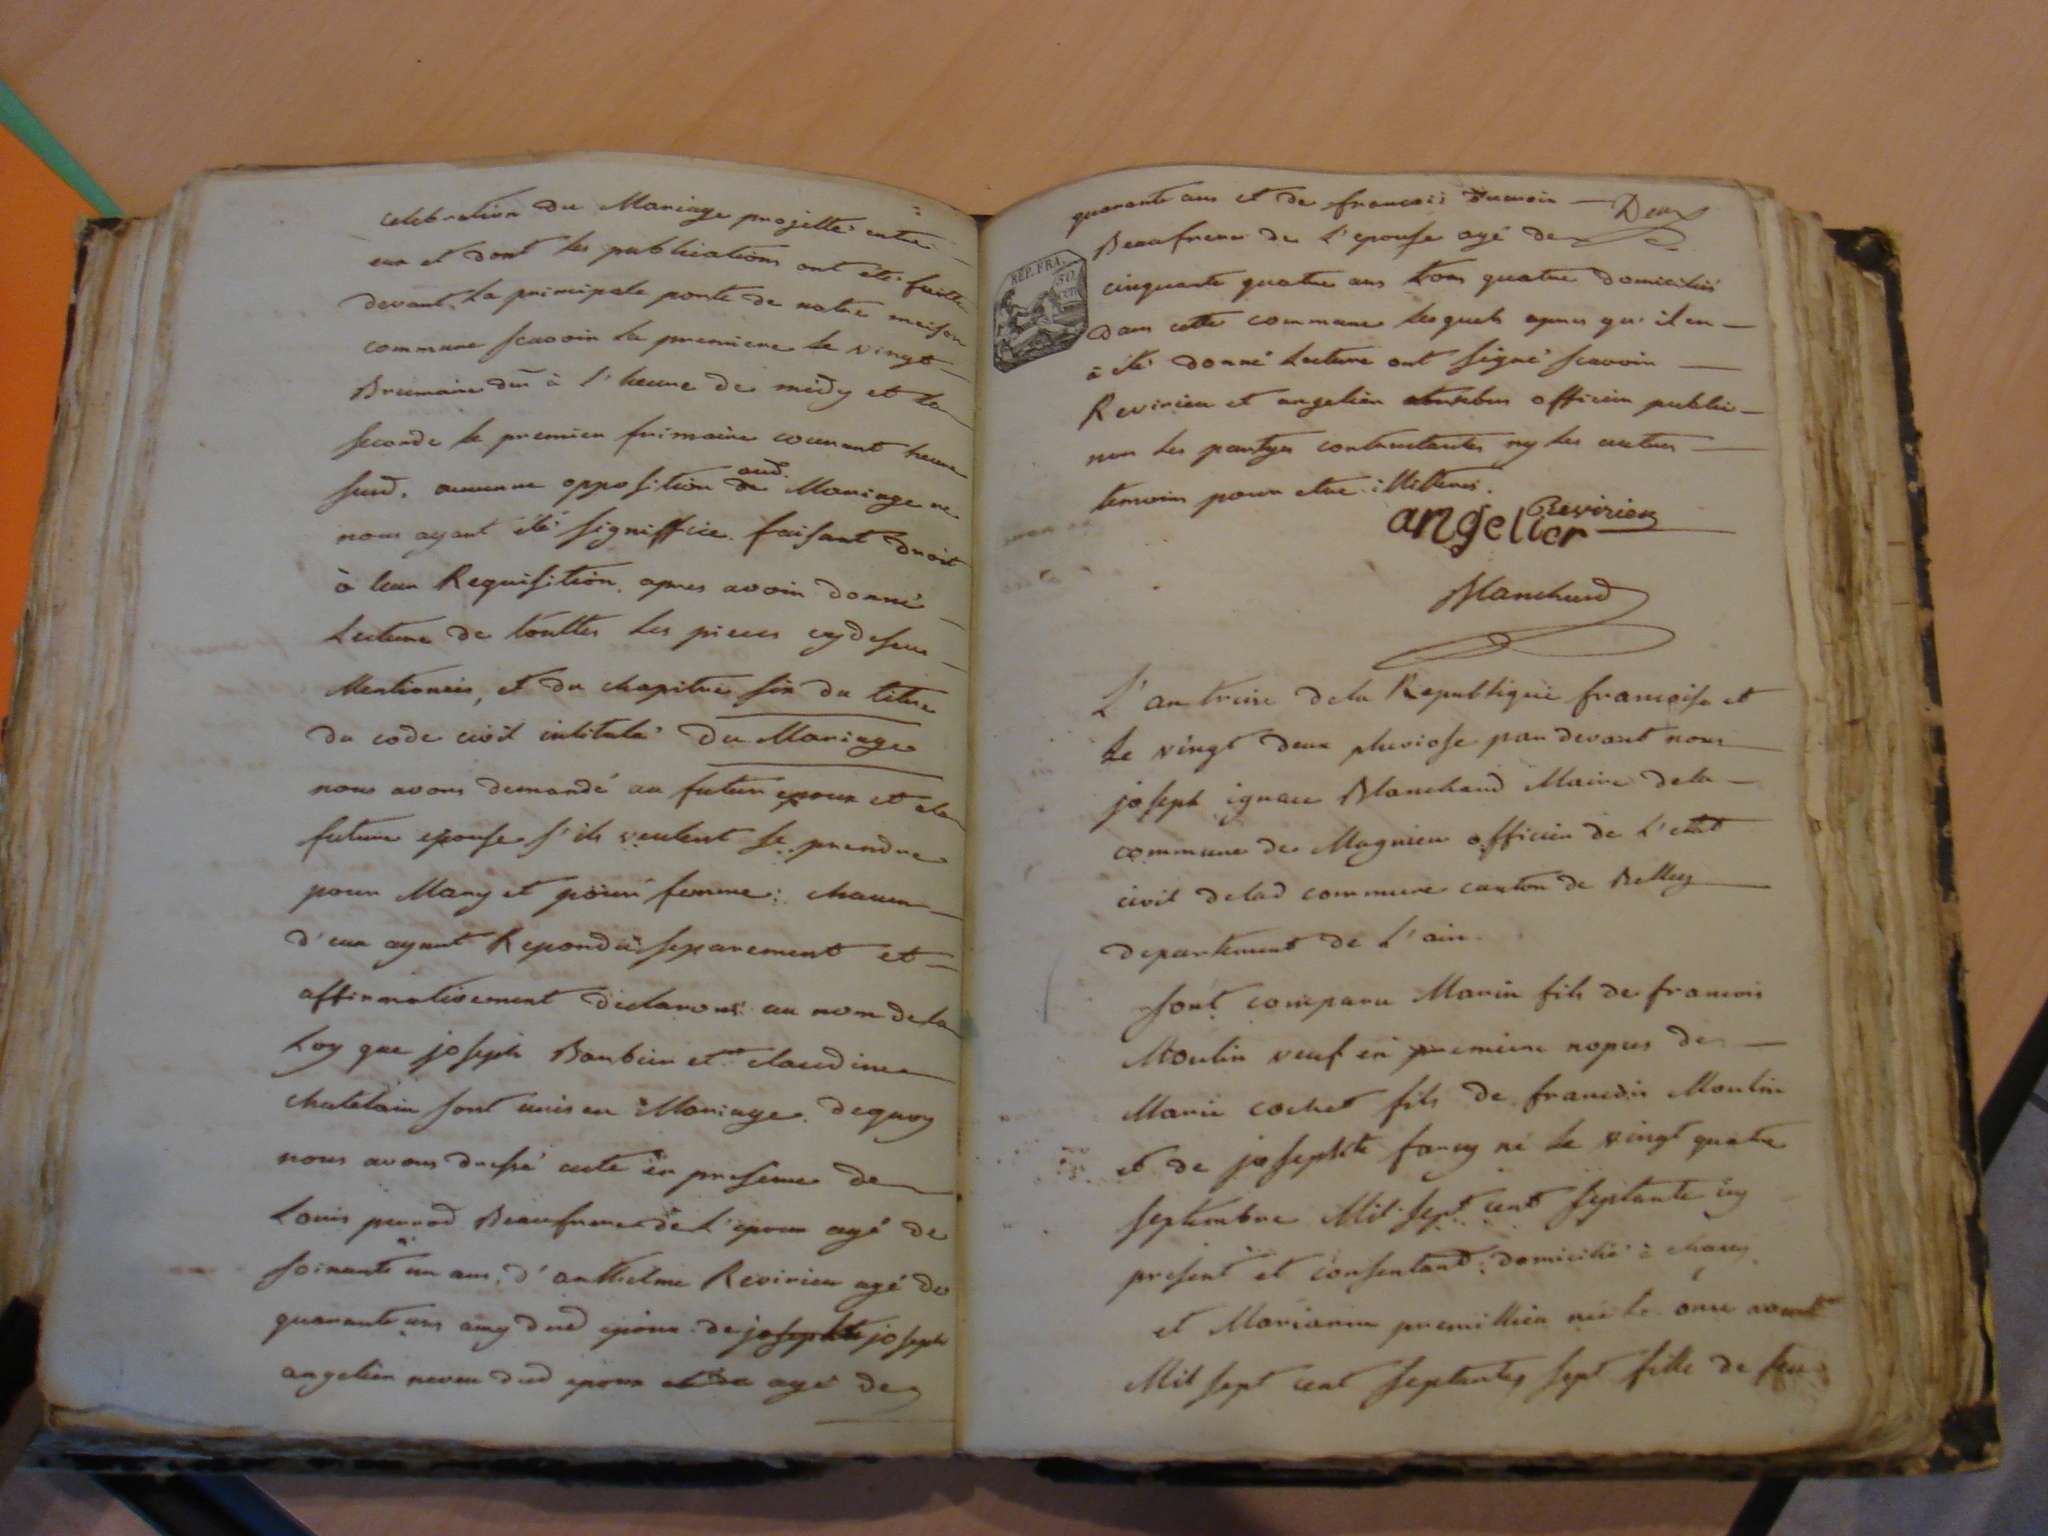 celebration du Mariage projetté entre
eux et dont les publications ont eté faitte
devant la principale porte de notre maison
commune scavoir la premiere le vingt
Brumaire dr à l'heure de midy et la
seconde le premier frimaire courant heure
susd. aucunne opposition aud. Mariage ne
nous ayant été signiffiée. faisant droit
à leur Requisition, apres avoir donné
Lecture de touttes les pieces cydessus
Mentionées, et du chapitre six du titre
du code civil intitulé Du Mariage
nous avons demandé au futur epoux et a la
future epouse s'ils veulent se prendre
pour Mary et pour femme; chacun
d'eux ayant Repondu separement et
affirmativement declarons au nom de la
Loy que joseph Barbier et claudine
chatelain sont unis en Mariage. dequoy
nous avons dressé acte en presence de
Louis perrod Beaufrere de l'epoux agé de
soixante un ans, d'anthelme Revirieu agé de
quarante ans amy dud epoux. de josephte joseph
angelier neveu dud epoux et de agé de
quarante ans et de francois Deux
Beaufrere de l'epouse agé de
cinquante quatre ans tous quatre domiciliés
dans cette commune lesquels apres qu'il en
à été donné Lecture ont signé scavoir
Revirieu et angelier officier public
non les partyes contractantes ny les autres
temoins pour etre illitterés.
REP. FRA.
50
Revirieu
angelier
Blanchard
L'an treize de la Republique francoise et
le vingt deux pluviose par devant nous
joseph ignace Blanchard Maire de la
commune de Magnieu officier de l'etat
civil de lad commune canton de Belley
departement de l'ain.
sont comparu Marin fils de francois
Moulin veuf en premiere nopces de
Marie cochet fils de francois Moulin
et de josephte farcy né le vingt quatre
septembre Mil sept cent septante
present et consentant domicilié à
et Marianne premillieu née le onze avril
Mil sept cent septante sept fille de feu